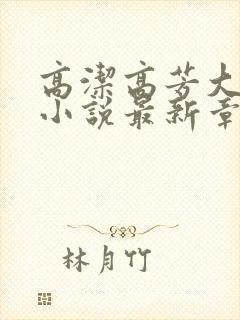 高潔高芳大
小說最新章
林月竹